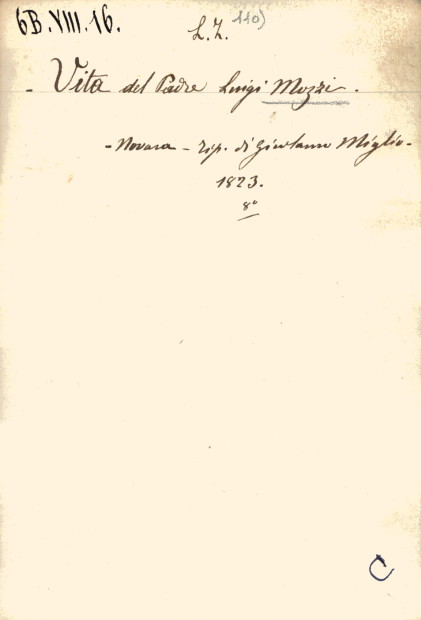 6B.VIII.16.
L.Z. 110)
- Vita del Padre Luigi Mozzi.
- Novara - Tip. di Girolamo Miglio -
1823.
8°
C